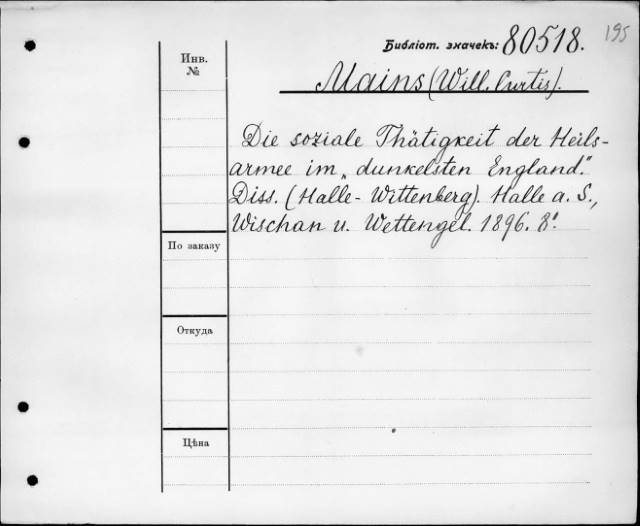 195
Библіот. значекъ: 80518.
Инв. №
Mains (Will. Curtis).
Die soziale Thätigkeit der Heils-
armee im „dunkelsten England."
Diss. (Halle-Wittenberg). Halle a. S.,
Wischan u. Wettengel. 1896. 8°.
По заказу
Откуда
Цѣна